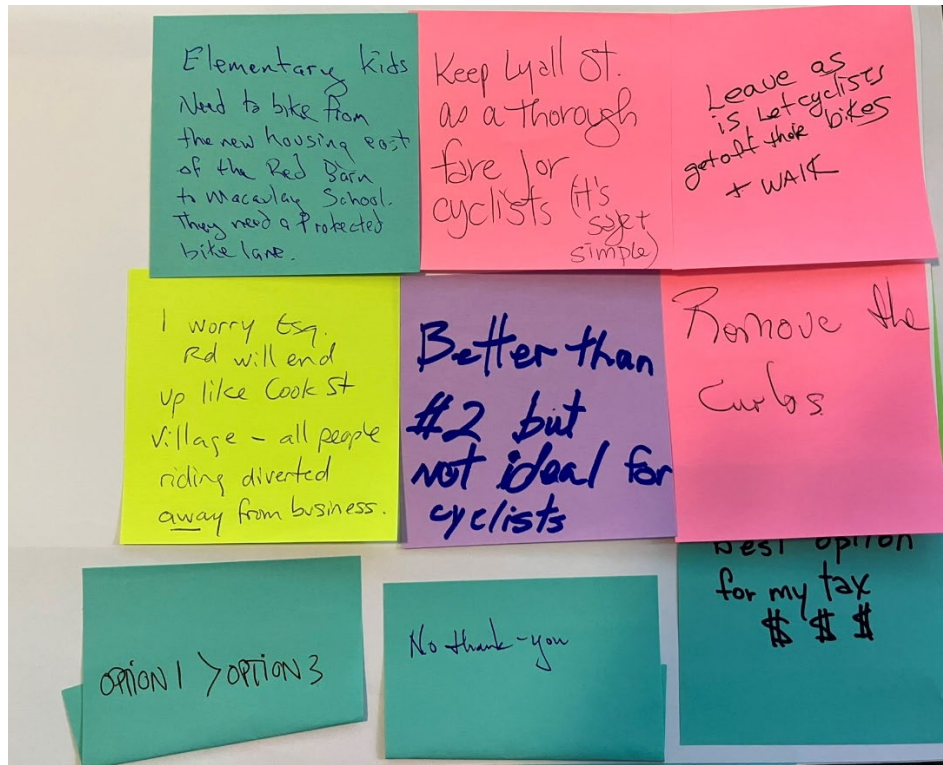 Elementary kids
Need to bike from
the new housing east
of the Red Barn
to Macaulay School.
They need a Protected
bike lane.
Keep Lyall St.
as a thorough
fare for
cyclists (it's
safe +
simple)
Leave as
is Let cyclists
get off their bikes
+ WALK
I worry Esq.
Rd will end
up like Cook St
Village - all people
riding diverted
away from business.
Better than
#2 but
not ideal for
cyclists
Remove the
Curbs
OPTION 1 > OPTION 3
No thank-you
Best option
for my tax
$ $ $